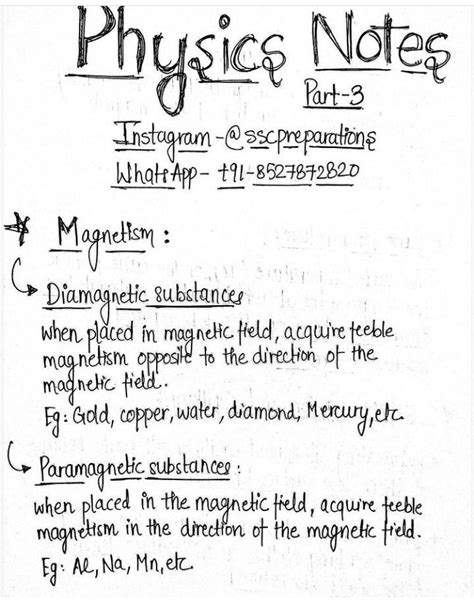 Physics Notes
Part-3
Instagram-@sscpreparations
WhatsApp- +91-8527872820
Magnetism:
Diamagnetic substances
when placed in magnetic field, acquire feeble
magnetism opposite to the direction of the
magnetic field.
Eg: Gold, copper, water, diamond, Mercury, etc.
Paramagnetic substances:
when placed in the magnetic field, acquire feeble
magnetism in the direction of the magnetic field.
Eg: Al, Na, Mn, etc.